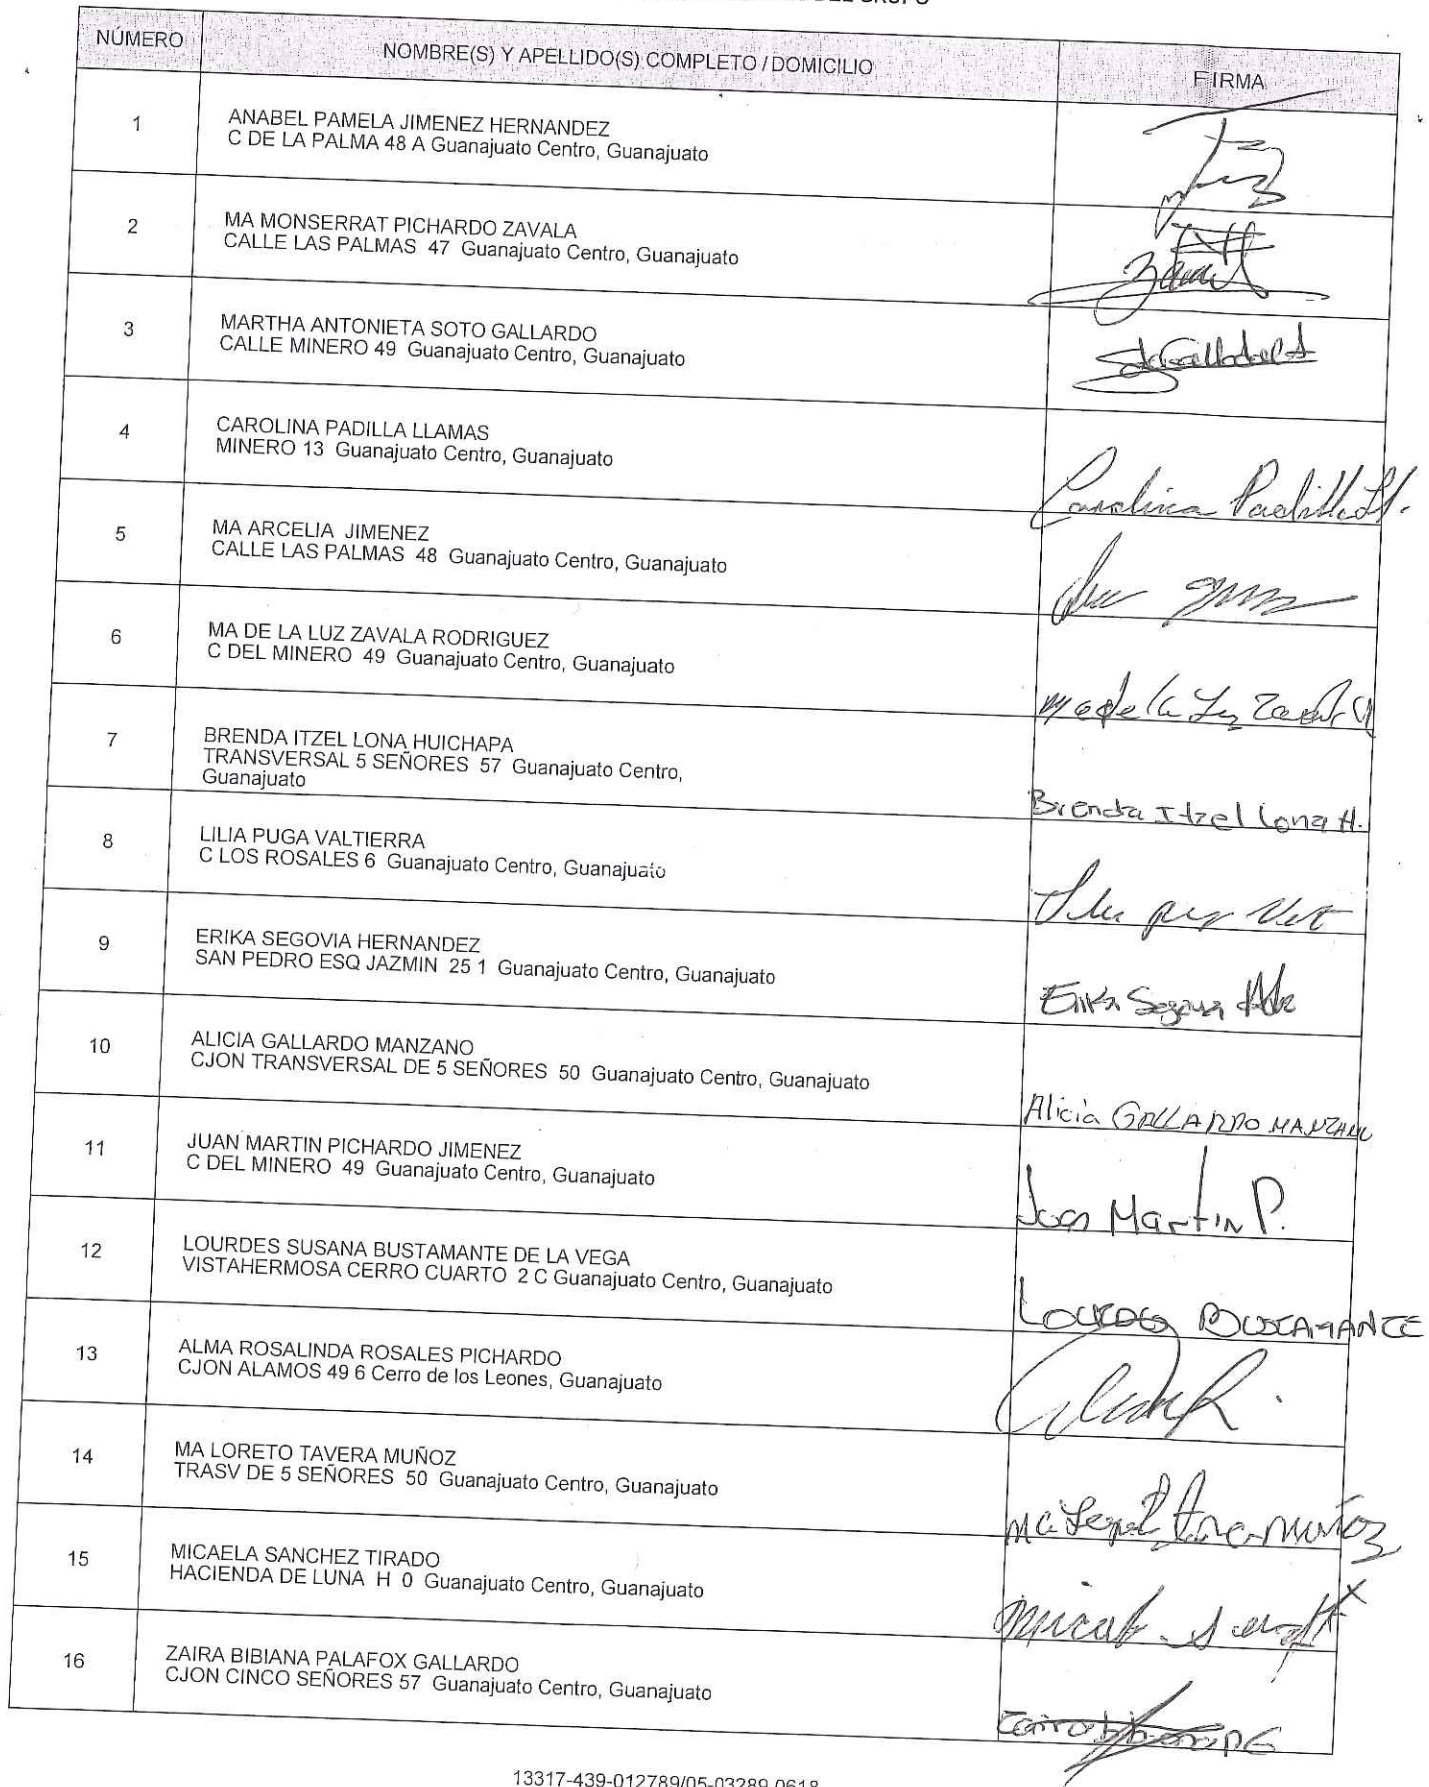 DEL GRUPO
NÚMERO NOMBRE(S) Y APELLIDO(S) COMPLETO / DOMICILIO FIRMA
1 ANABEL PAMELA JIMENEZ HERNANDEZ
C DE LA PALMA 48 A Guanajuato Centro, Guanajuato
2 MA MONSERRAT PICHARDO ZAVALA
CALLE LAS PALMAS 47 Guanajuato Centro, Guanajuato
3 MARTHA ANTONIETA SOTO GALLARDO
CALLE MINERO 49 Guanajuato Centro, Guanajuato
4 CAROLINA PADILLA LLAMAS
MINERO 13 Guanajuato Centro, Guanajuato
Carolina Padilla Ll.
5 MA ARCELIA JIMENEZ
CALLE LAS PALMAS 48 Guanajuato Centro, Guanajuato
6 MA DE LA LUZ ZAVALA RODRIGUEZ
C DEL MINERO 49 Guanajuato Centro, Guanajuato
Ma de la Luz
7 BRENDA ITZEL LONA HUICHAPA
TRANSVERSAL 5 SEÑORES 57 Guanajuato Centro,
Guanajuato
Brenda Itzel Lona H.
8 LILIA PUGA VALTIERRA
C LOS ROSALES 6 Guanajuato Centro, Guanajuato
9 ERIKA SEGOVIA HERNANDEZ
SAN PEDRO ESQ JAZMIN 25 1 Guanajuato Centro, Guanajuato
Erika Segovia
10 ALICIA GALLARDO MANZANO
CJON TRANSVERSAL DE 5 SEÑORES 50 Guanajuato Centro, Guanajuato
Alicia GALLARDO MANZANO
11 JUAN MARTIN PICHARDO JIMENEZ
C DEL MINERO 49 Guanajuato Centro, Guanajuato
Juan Martin P.
12 LOURDES SUSANA BUSTAMANTE DE LA VEGA
VISTAHERMOSA CERRO CUARTO 2 C Guanajuato Centro, Guanajuato
LOURDES BUSTAMANTE
13 ALMA ROSALINDA ROSALES PICHARDO
CJON ALAMOS 49 6 Cerro de los Leones, Guanajuato
14 MA LORETO TAVERA MUÑOZ
TRASV DE 5 SEÑORES 50 Guanajuato Centro, Guanajuato
15 MICAELA SANCHEZ TIRADO
HACIENDA DE LUNA H 0 Guanajuato Centro, Guanajuato
16 ZAIRA BIBIANA PALAFOX GALLARDO
CJON CINCO SEÑORES 57 Guanajuato Centro, Guanajuato
13317-439-012789/05-03289 0618